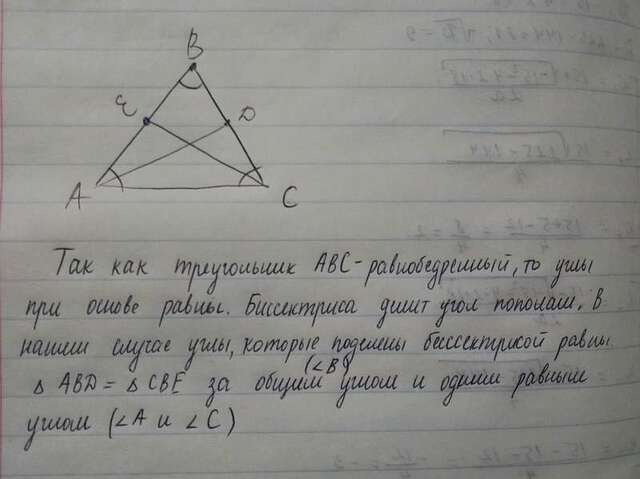 B
E
D
A
C
Так как треугольник ABC-равнобедренный, то углы
при основе равны. Биссектриса делит угол пополам. В
нашем случае углы, которые поделены биссектрисой равны.
△ ABD = △ CBE за общим (∠B) углом и одним равным
углом (∠A и ∠C)